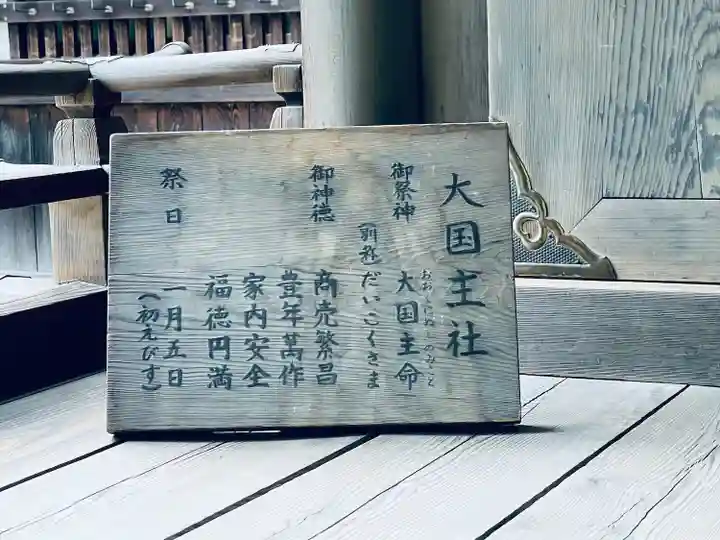 大国主社
御祭神 大国主命
おおくにぬしのみこと
(別称)だいこくさま
御神徳 商売繁昌
豊年萬作
家内安全
福徳円満
祭日 一月五日
(初えびす)